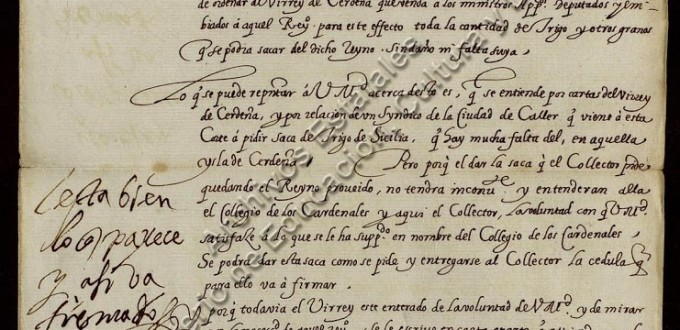 de ordenar al Virrey de Cerdeña que venda a los ministros App.cos Deputados y em-
biados à aquel Rey.no para este effecto toda la cantidad de Trigo y otros granos
q̃ se podria sacar del dicho Reyno sin daño ni falta suya
Lo q̃ se puede repñtar à V. M.d acerca desto es, q̃ se entiende por cartas del Virrey
de Cerdeña, y por relacion de un Syndico de la Ciudad de Caller q̃ vieno à esta
Corte à pidir saca de Trigo de Sicilia, q̃ hay mucha falta del, en aquella
ysla de Cerdeña. Pero porq̃ el dar la saca q̃ el Collector pide
quedando el Reyno proueido, no tendra inconu.te y entenderan alla
el Collegio de los Cardenales y aqui el Collector, la voluntad con q̃ V. M.d
satisfaze à lo que se le ha supp.do en nombre del Collegio de los Cardenales
Se podra dar esta saca como se pide y entregarse al Collector la cedula q̃
para ello va à firmar.
porq̃ todavia el Virrey este enterado de la voluntad de V. M.d y de mirar
se le escriue en carta aparte
esta bien
lo q̃ parece
y asi va
firmado
Archivos Estatales
Ministerio de Educación, Cultura y